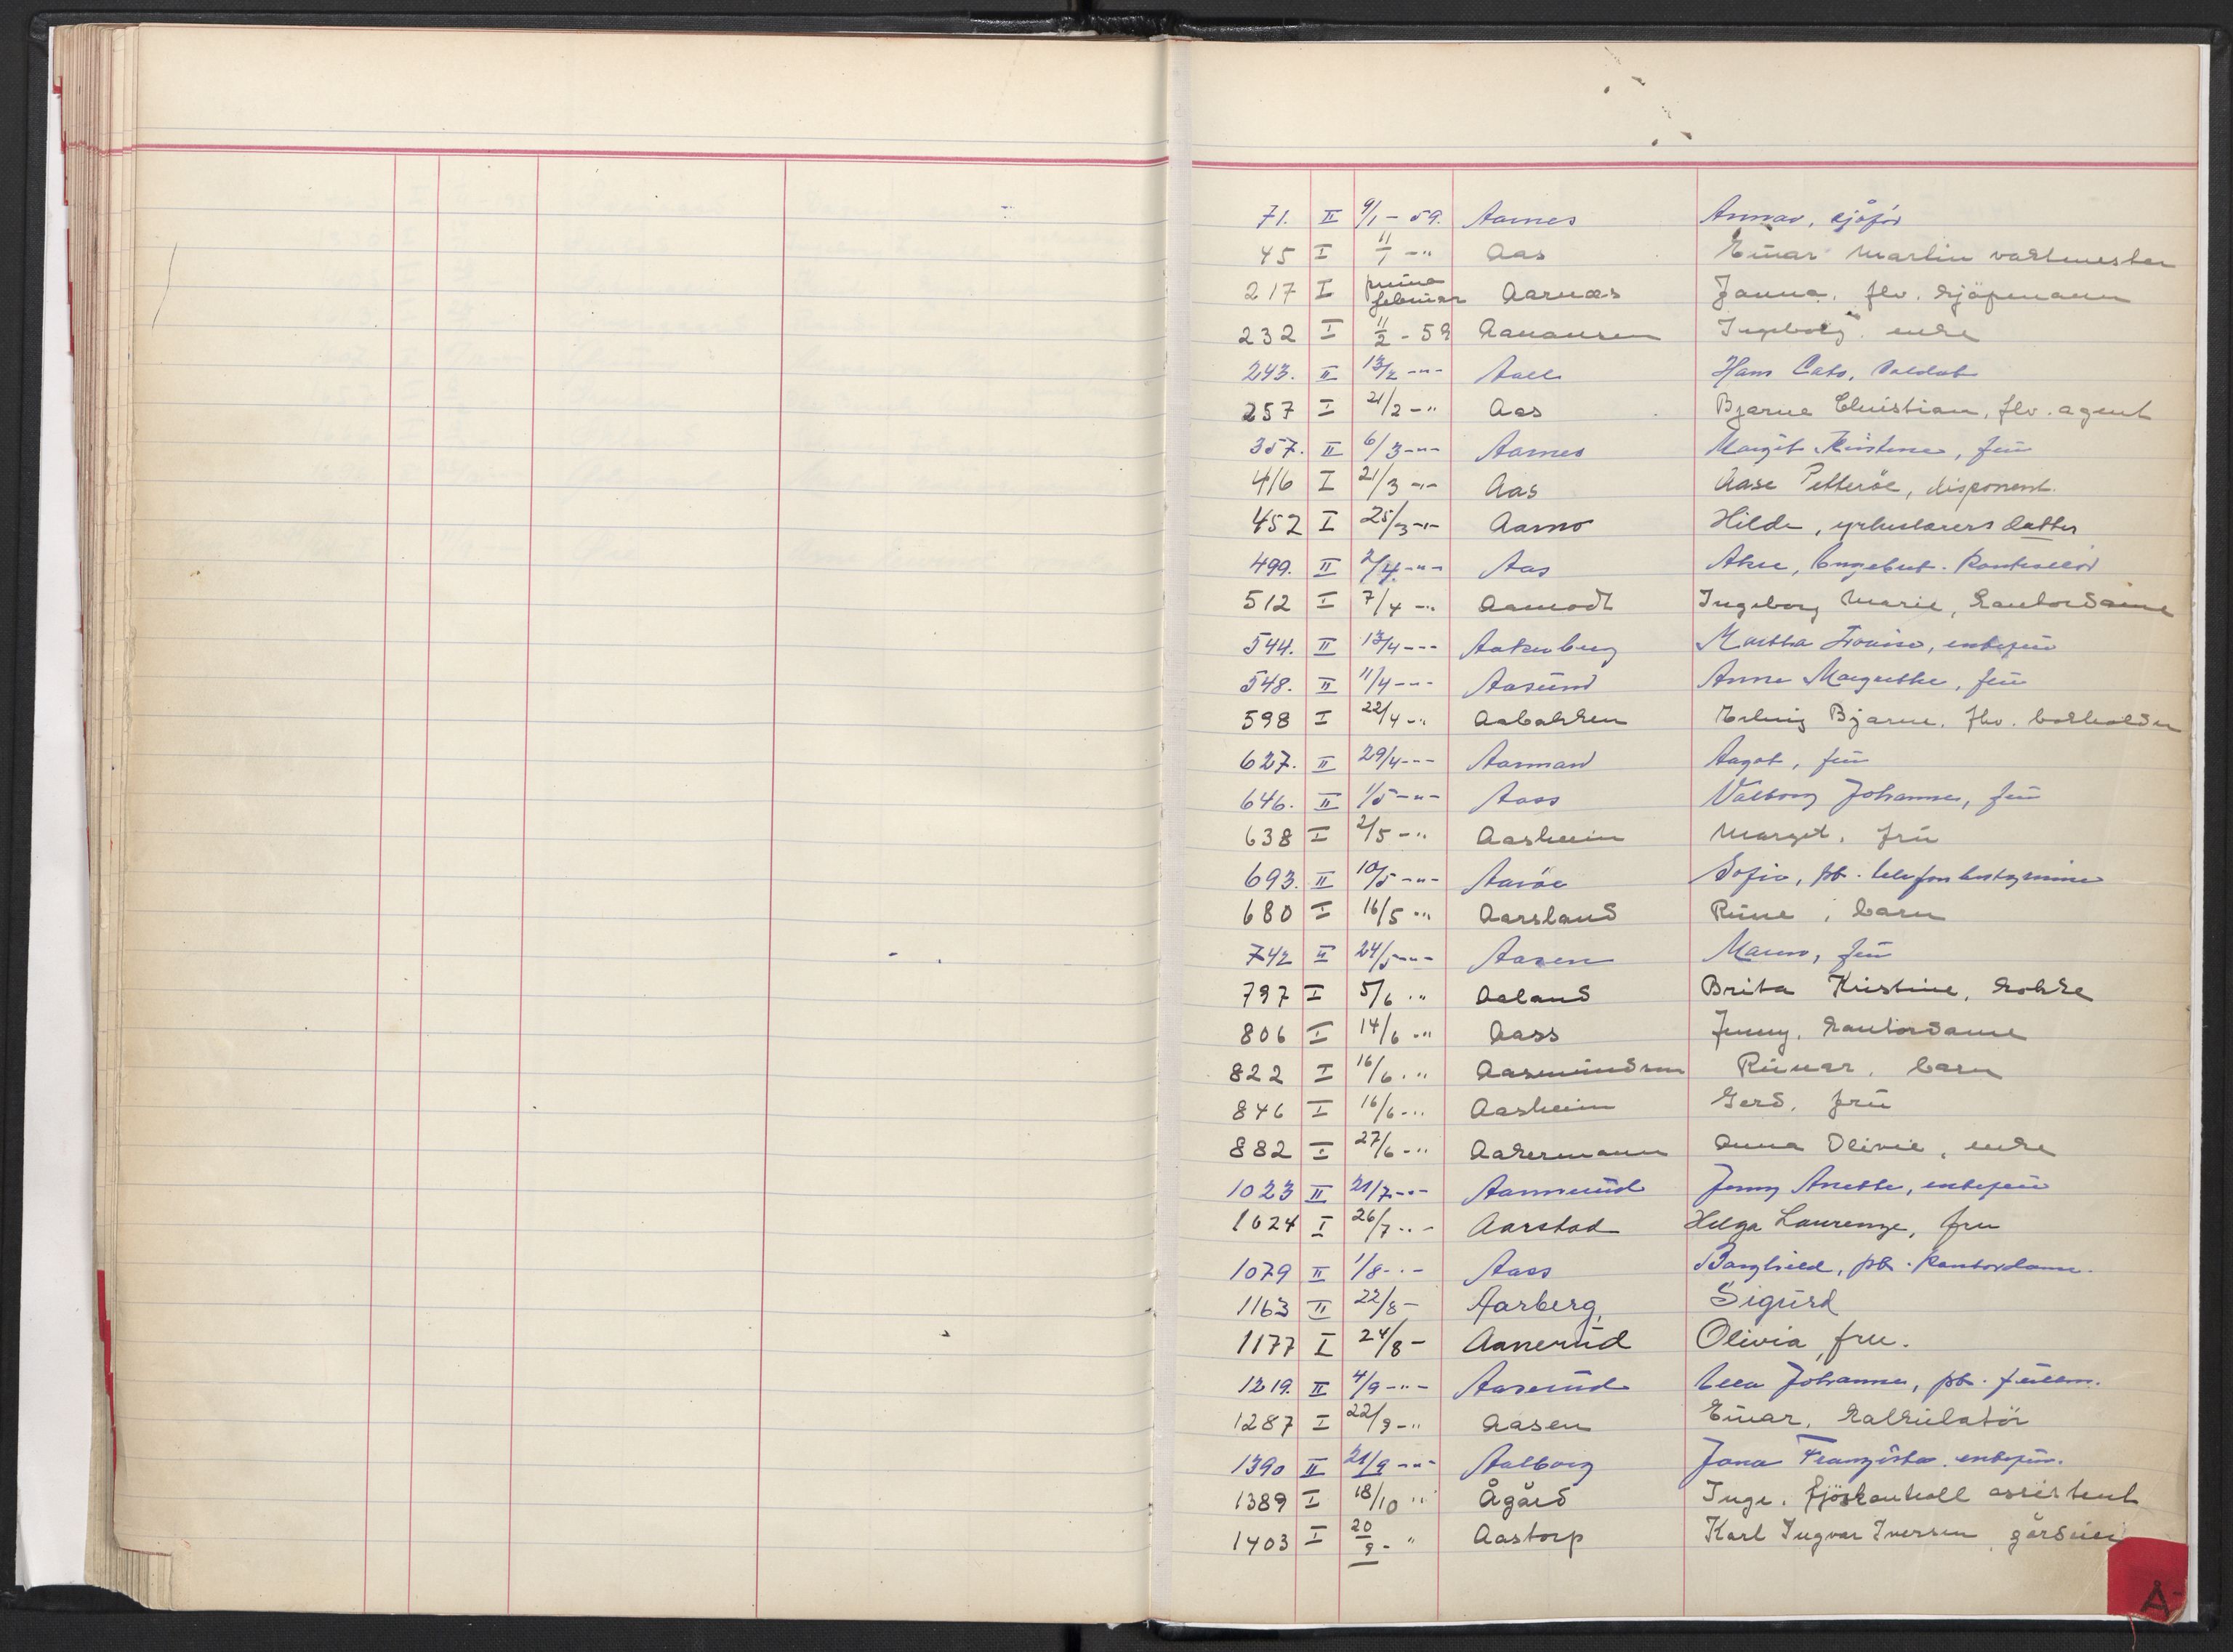 71. II 9/1 - 59. Aarnes Annar, sjåfør
45 I 11/1 - " Aas Einar Martin vaktmester
217 I primo februar Aarnæs Janna, flv. kjøpmann
232 I 11/2 - 59 Aanansen Ingeborg enke
243. II 13/2 - " - Aall Hans Cato, soldat
257 I 21/2 - " Aas Bjarne Christian, flv. agent
357. II 6/3 - " - Aarnes Margit Kristense, frü
416 I 21/3 - " - Aas Aase Petterøe, disponent.
452 I 25/3 - " - Aamo Hilde, yrkeslærers datter
499. II 2/4. - " - Aas Åkre, Engebret. kontrollør
512 I 7/4 - " Aamodt Ingeborg Marie, kontordame
544. II 13/4 - - - Aakerberg Martha Lovise, enkefrü
548. II 11/4 - " - Aasünd Anna Margrethe, frü
598 I 22/4 - " Aabakken Erling Bjarne. flv. bokholder
627. II 29/4 - - - Aamand Aagot, frü
646. II 1/5 - " - Aass Valborg Johanne, frü
638 I 2/5 - " Aasheim Marget, frü
693. II 10/5 - " - Aarøe Sofie, pb. telefonbestyrerinne
680 I 16/5 - " Aarsland Rüne, barn
742 II 24/5 - " - Aasen Maren, frü
797 I 5/6 - " Aaland Brita Kristine, kokke
806 I 14/6 - " Aass Jenny, kontordame
822 I 16/6 - " Aasmündsen Rünar, barn
846 I 16/6 - " Aasheim Gerd, frü
882 I 27/6 - " Aakermann Anna Olivie, enke
1023 II 21/7 - " - Aamünd Jenny Anette, enkefrü
1024 I 26/7 - " - Aarstad Helga Laurenze, fru
1079 II 1/8 - " - Aass Borghild, pb. kontordame.
1163 II 22/8 - Aarberg, Sigürd
1177 I 24/8 - Aanerüd Olivia, fru.
1219. II 4/9 - " - Aaserüd Johanne, pb.
1287 I 22/9 - " Aasen Einar, kalkülatör
1390 II 21/9 - " - Aalborg Jana Franziska, enkefrü.
1389 I 18/10 " Ågård Inge, fjøskontroll assistent
1403 I 20/9 - " Aastorp Karl Ingvar Iversen, gårdeier
Å